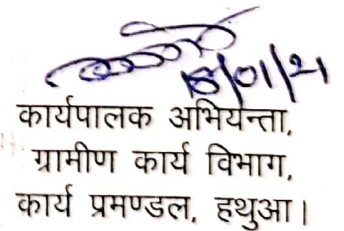 18/01/21
कार्यपालक अभियन्ता,
ग्रामीण कार्य विभाग,
कार्य प्रमण्डल, हथुआ।